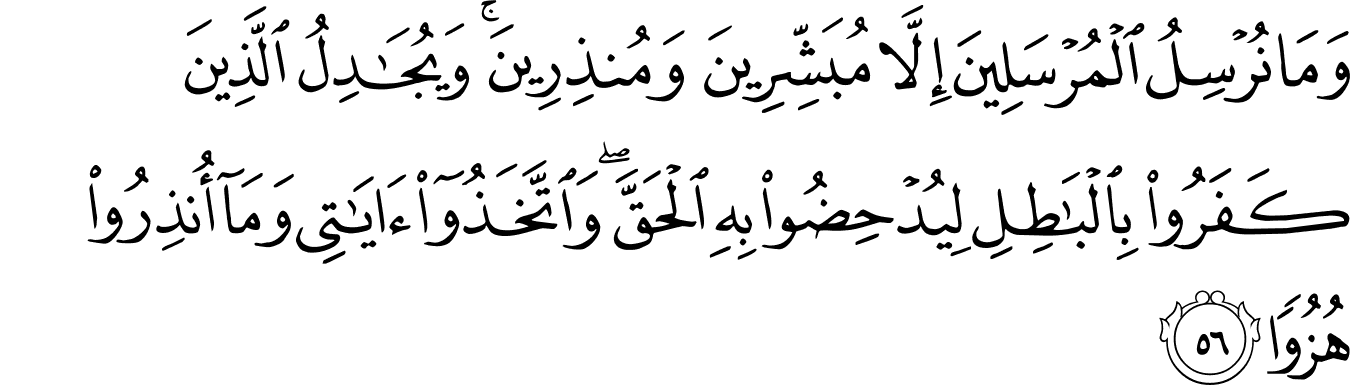 وَمَا نُرْسِلُ ٱلْمُرْسَلِينَ إِلَّا مُبَشِّرِينَ وَمُنذِرِينَ ۚ وَيُجَـٰدِلُ ٱلَّذِينَ
كَفَرُوا۟ بِٱلْبَـٰطِلِ لِيُدْحِضُوا۟ بِهِ ٱلْحَقَّ ۖ وَٱتَّخَذُوٓا۟ ءَايَـٰتِى وَمَآ أُنذِرُوا۟
هُزُوًا ٥٦